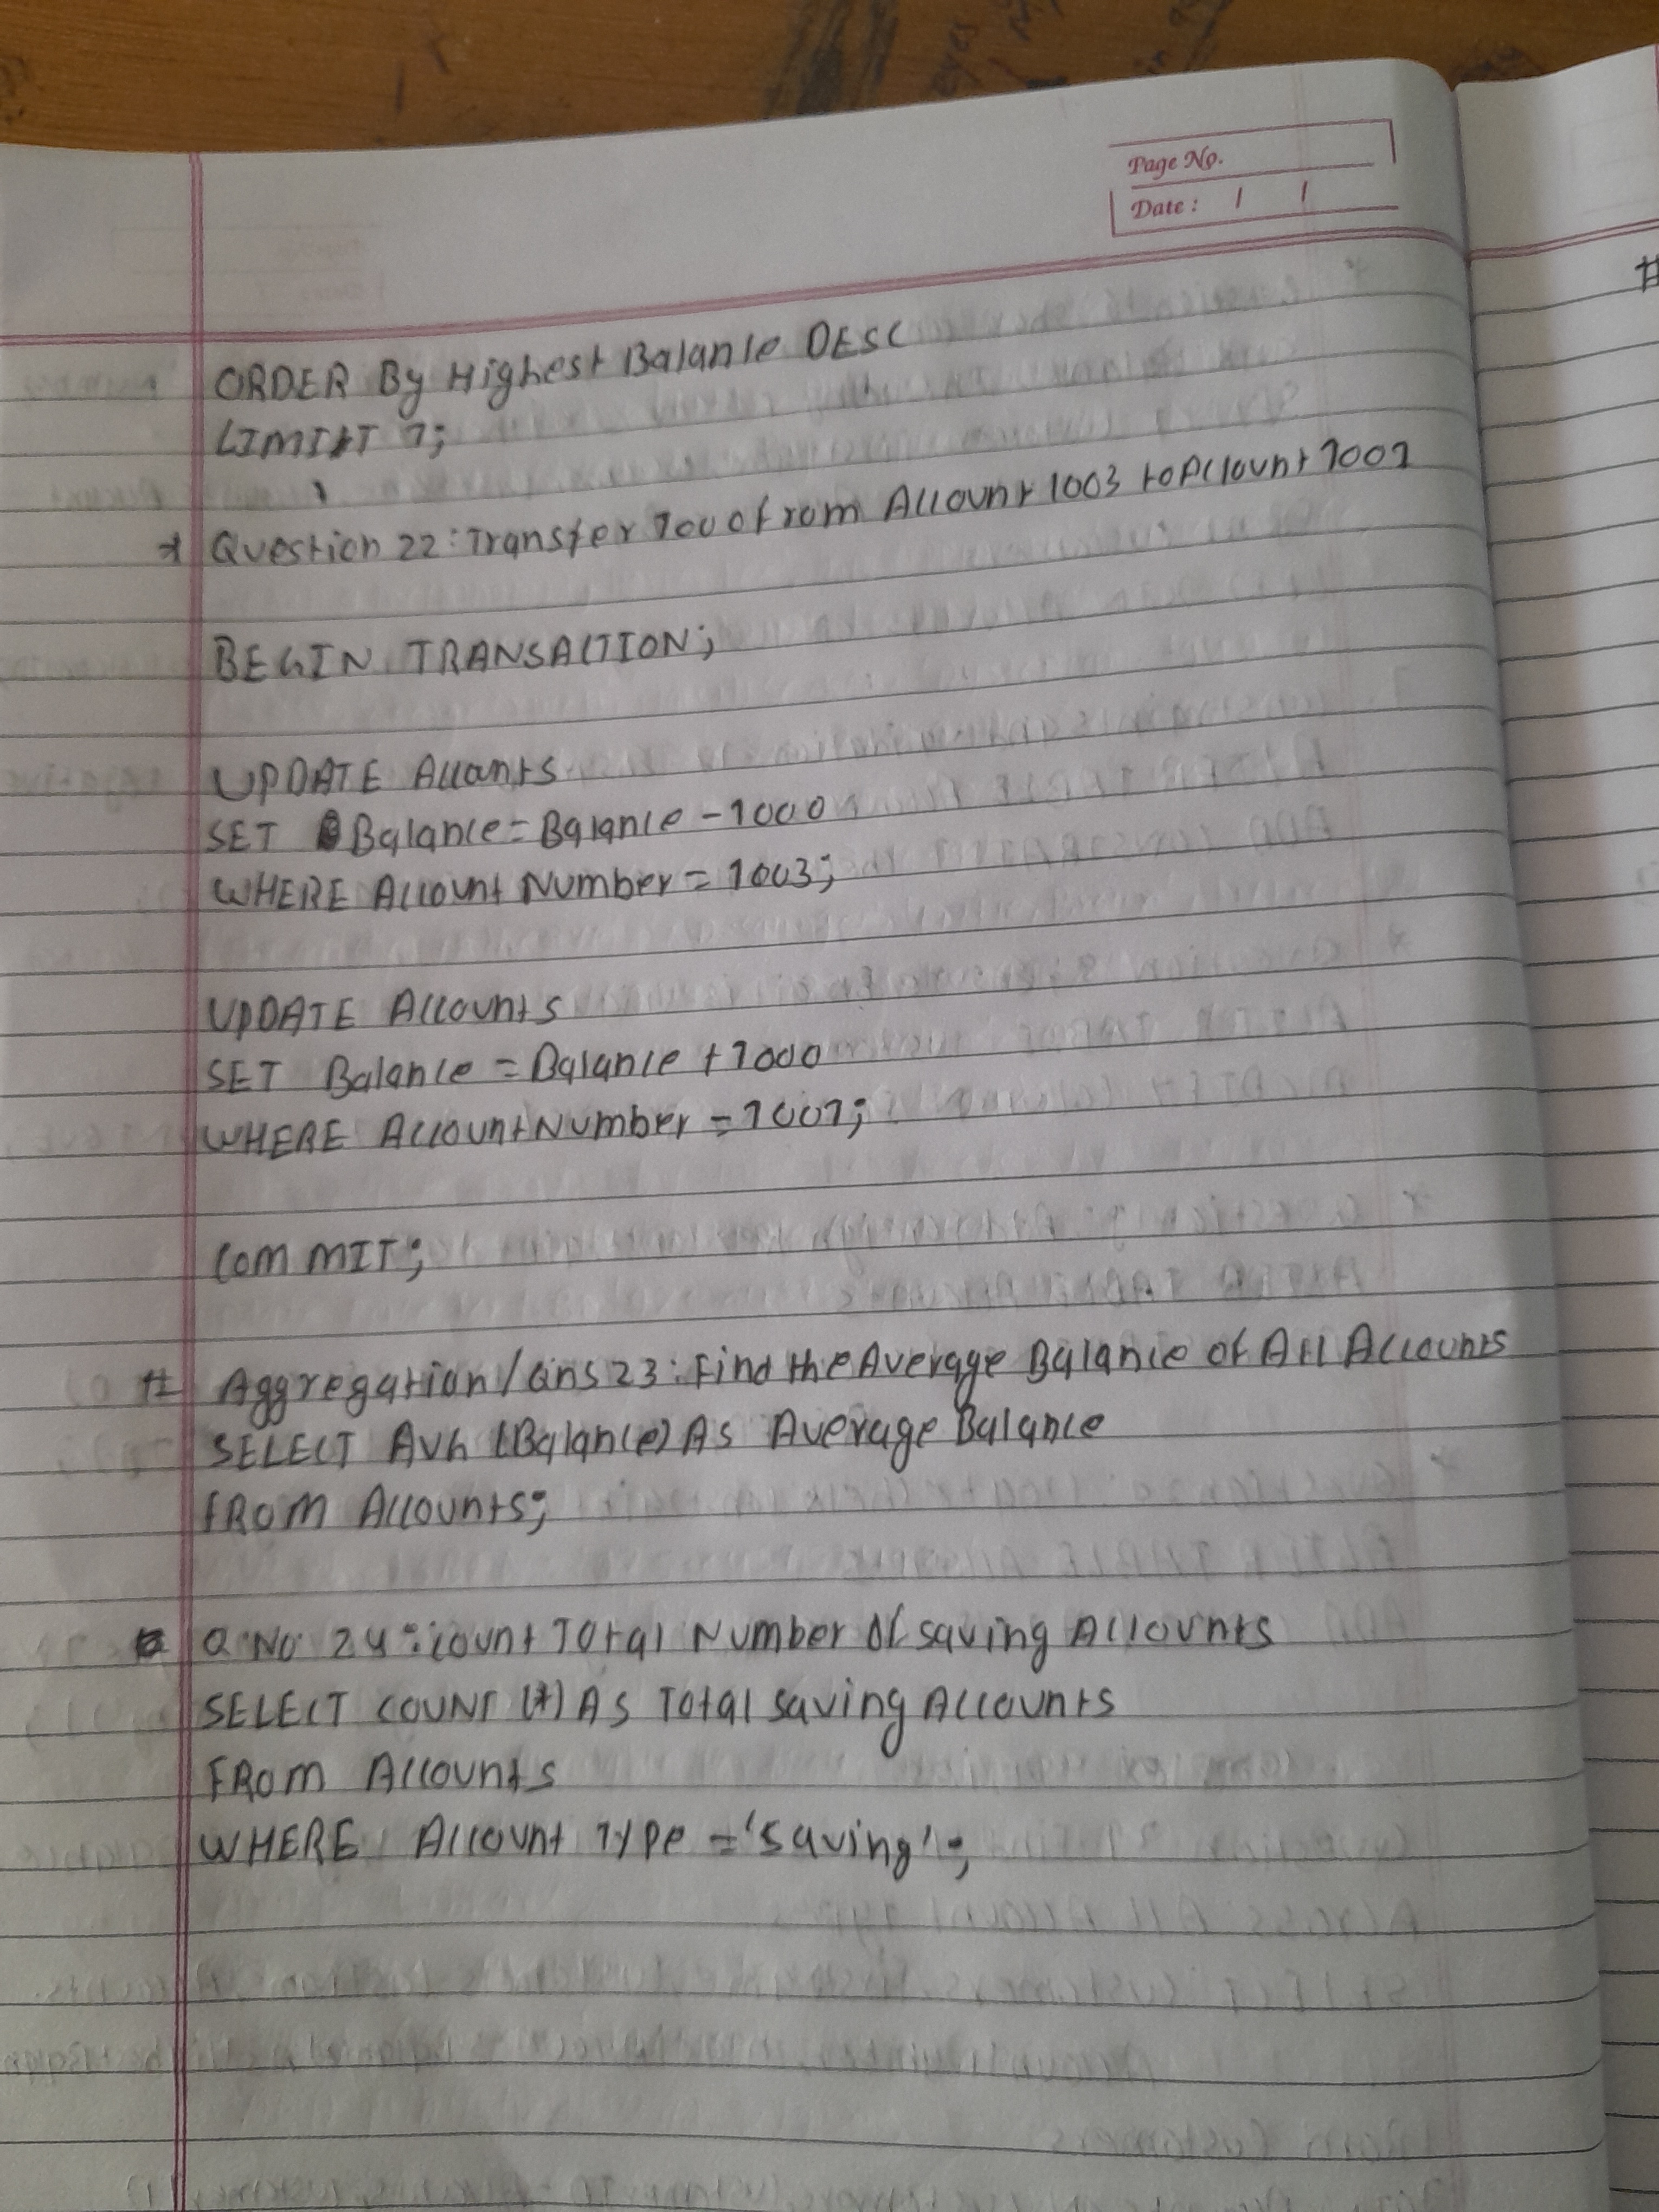 Page No.
Date : / /
#
ORDER By Highest Balance DESC
LIMIT 1;
* Question 22: Transfer 1000 from Account 1003 to Account 1001
BEGIN TRANSACTION;
UPDATE Accounts
SET Balance = Balance - 1000
WHERE Account Number = 1003;
UPDATE Accounts
SET Balance = Balance + 1000
WHERE AccountNumber = 1001;
COMMIT;
# Aggregation / Qns 23: Find the Average Balance of All Accounts
SELECT AVG (Balance) As Average Balance
FROM Accounts;
Q. No 24: count Total Number Of saving Accounts
SELECT COUNT (*) As Total saving Accounts
FROM Accounts
WHERE Account Type = 'saving';